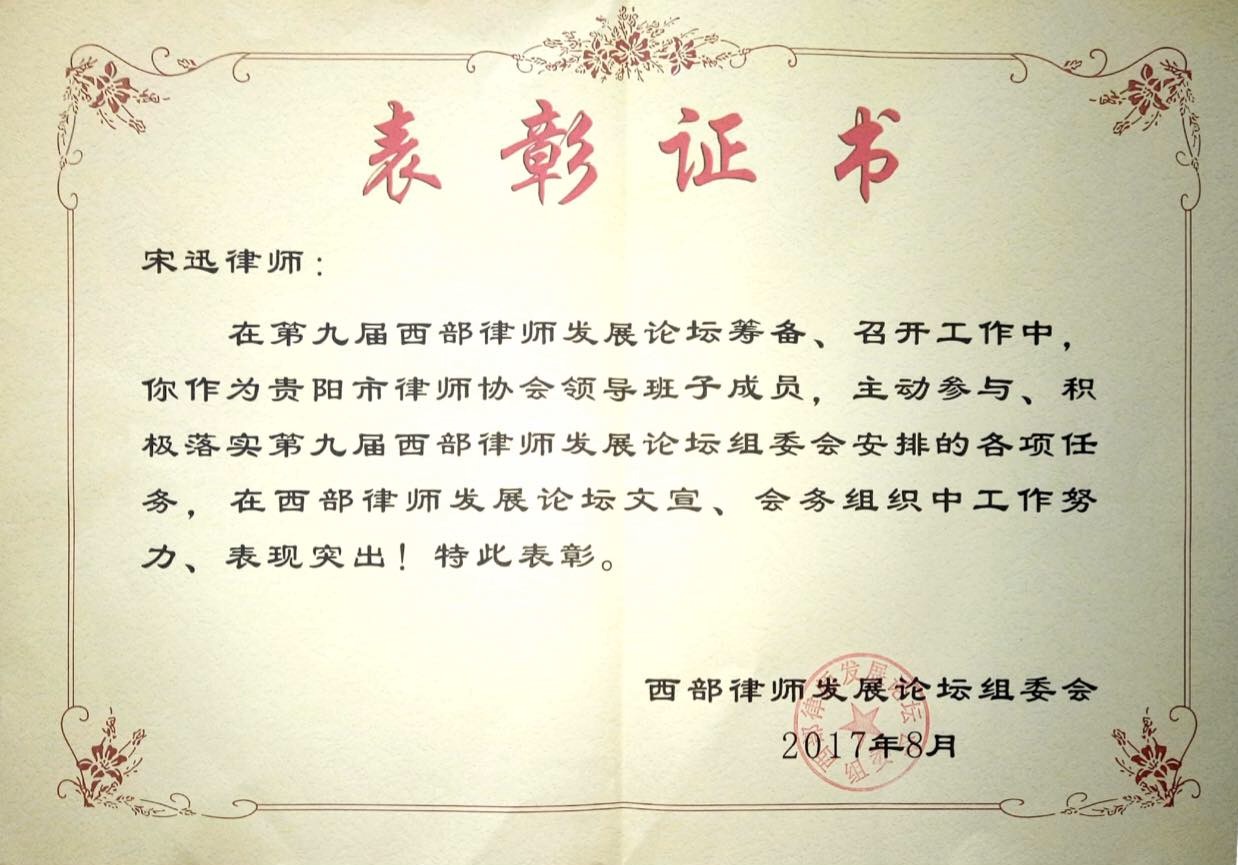 表彰证书
宋迅律师：
在第九届西部律师发展论坛筹备、召开工作中，
你作为贵阳市律师协会领导班子成员，主动参与、积
极落实第九届西部律师发展论坛组委会安排的各项任
务，在西部律师发展论坛文宣、会务组织中工作努
力、表现突出！特此表彰。
西部律师发展论坛组委会
2017年8月
西部律师发展论坛
组委会